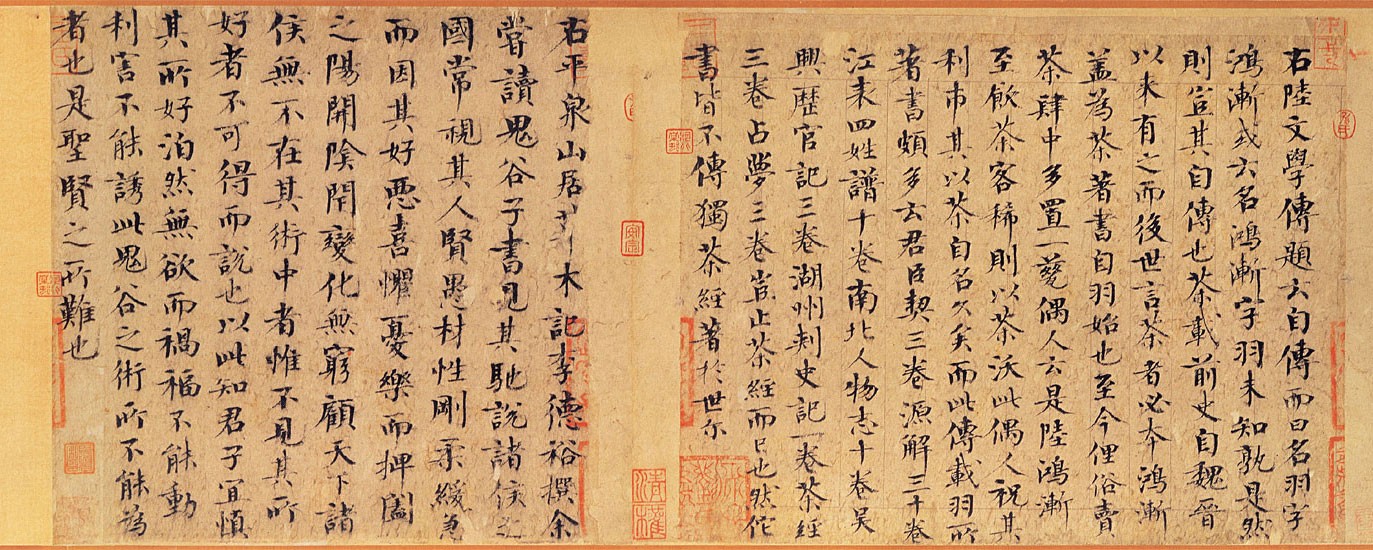 右陸文學傳題云自傳而曰名羽字
鴻漸或云名鴻漸字羽未知孰是然
則豈其自傳也茶載前史自魏晉
以来有之而後世言茶者必本鴻漸
盖為茶著書自羽始也至今俚俗賣
茶肆中多置一甆偶人云是陸鴻漸
至飲茶客稀則以茶沃此偶人祝其
利市其以茶自名久矣而此傳載羽所
著書頗多云君臣契三卷源解三十卷
江表四姓譜十卷南北人物志十卷吳
興歷官記三卷湖州刺史記一卷茶經
三卷占夢三卷豈止茶經而已也然佗
書皆不傳獨茶經著於世尔
右平泉山居草木記李德裕撰余
嘗讀鬼谷子書見其馳說諸侯之
國常視其人賢愚材性剛柔緩急
而因其好惡喜懼憂樂而捭闔
之陽開陰閉變化無窮顧天下諸
侯無不在其術中者惟不見其所
好者不可得而說也以此知君子宜慎
其所好泊然無欲而禍福不能動
利害不能誘此鬼谷之術所不能為
者也是聖賢之所難也